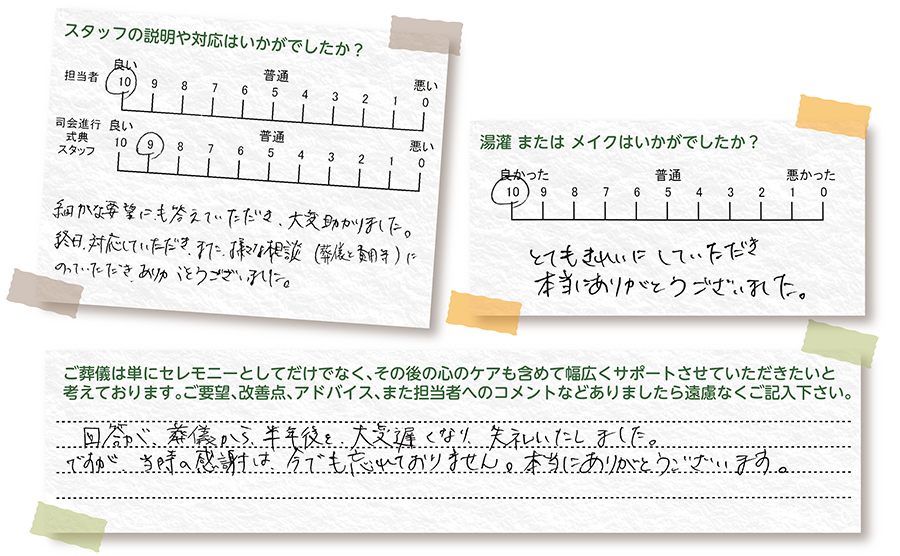 スタッフの説明や対応はいかがでしたか？
担当者
良い 普通 悪い
10 9 8 7 6 5 4 3 2 1 0
司会進行
式典
スタッフ
良い 普通 悪い
10 9 8 7 6 5 4 3 2 1 0
細かな要望にも答えていただき、大変助かりました。
終日、対応していただき、また、様々な相談（葬儀と費用等）に
のっていただき、ありがとうございました。
湯灌 または メイクはいかがでしたか？
良かった 普通 悪かった
10 9 8 7 6 5 4 3 2 1 0
とてもきれいにしていただき
本当にありがとうございました。
ご葬儀は単にセレモニーとしてだけでなく、その後の心のケアも含めて幅広くサポートさせていただきたいと
考えております。ご要望、改善点、アドバイス、また担当者へのコメントなどありましたら遠慮なくご記入下さい。
回答が、葬儀から、半年後と、大変遅くなり、失礼いたしました。
ですが、当時の感謝は、今でも忘れておりません。本当にありがとうございます。